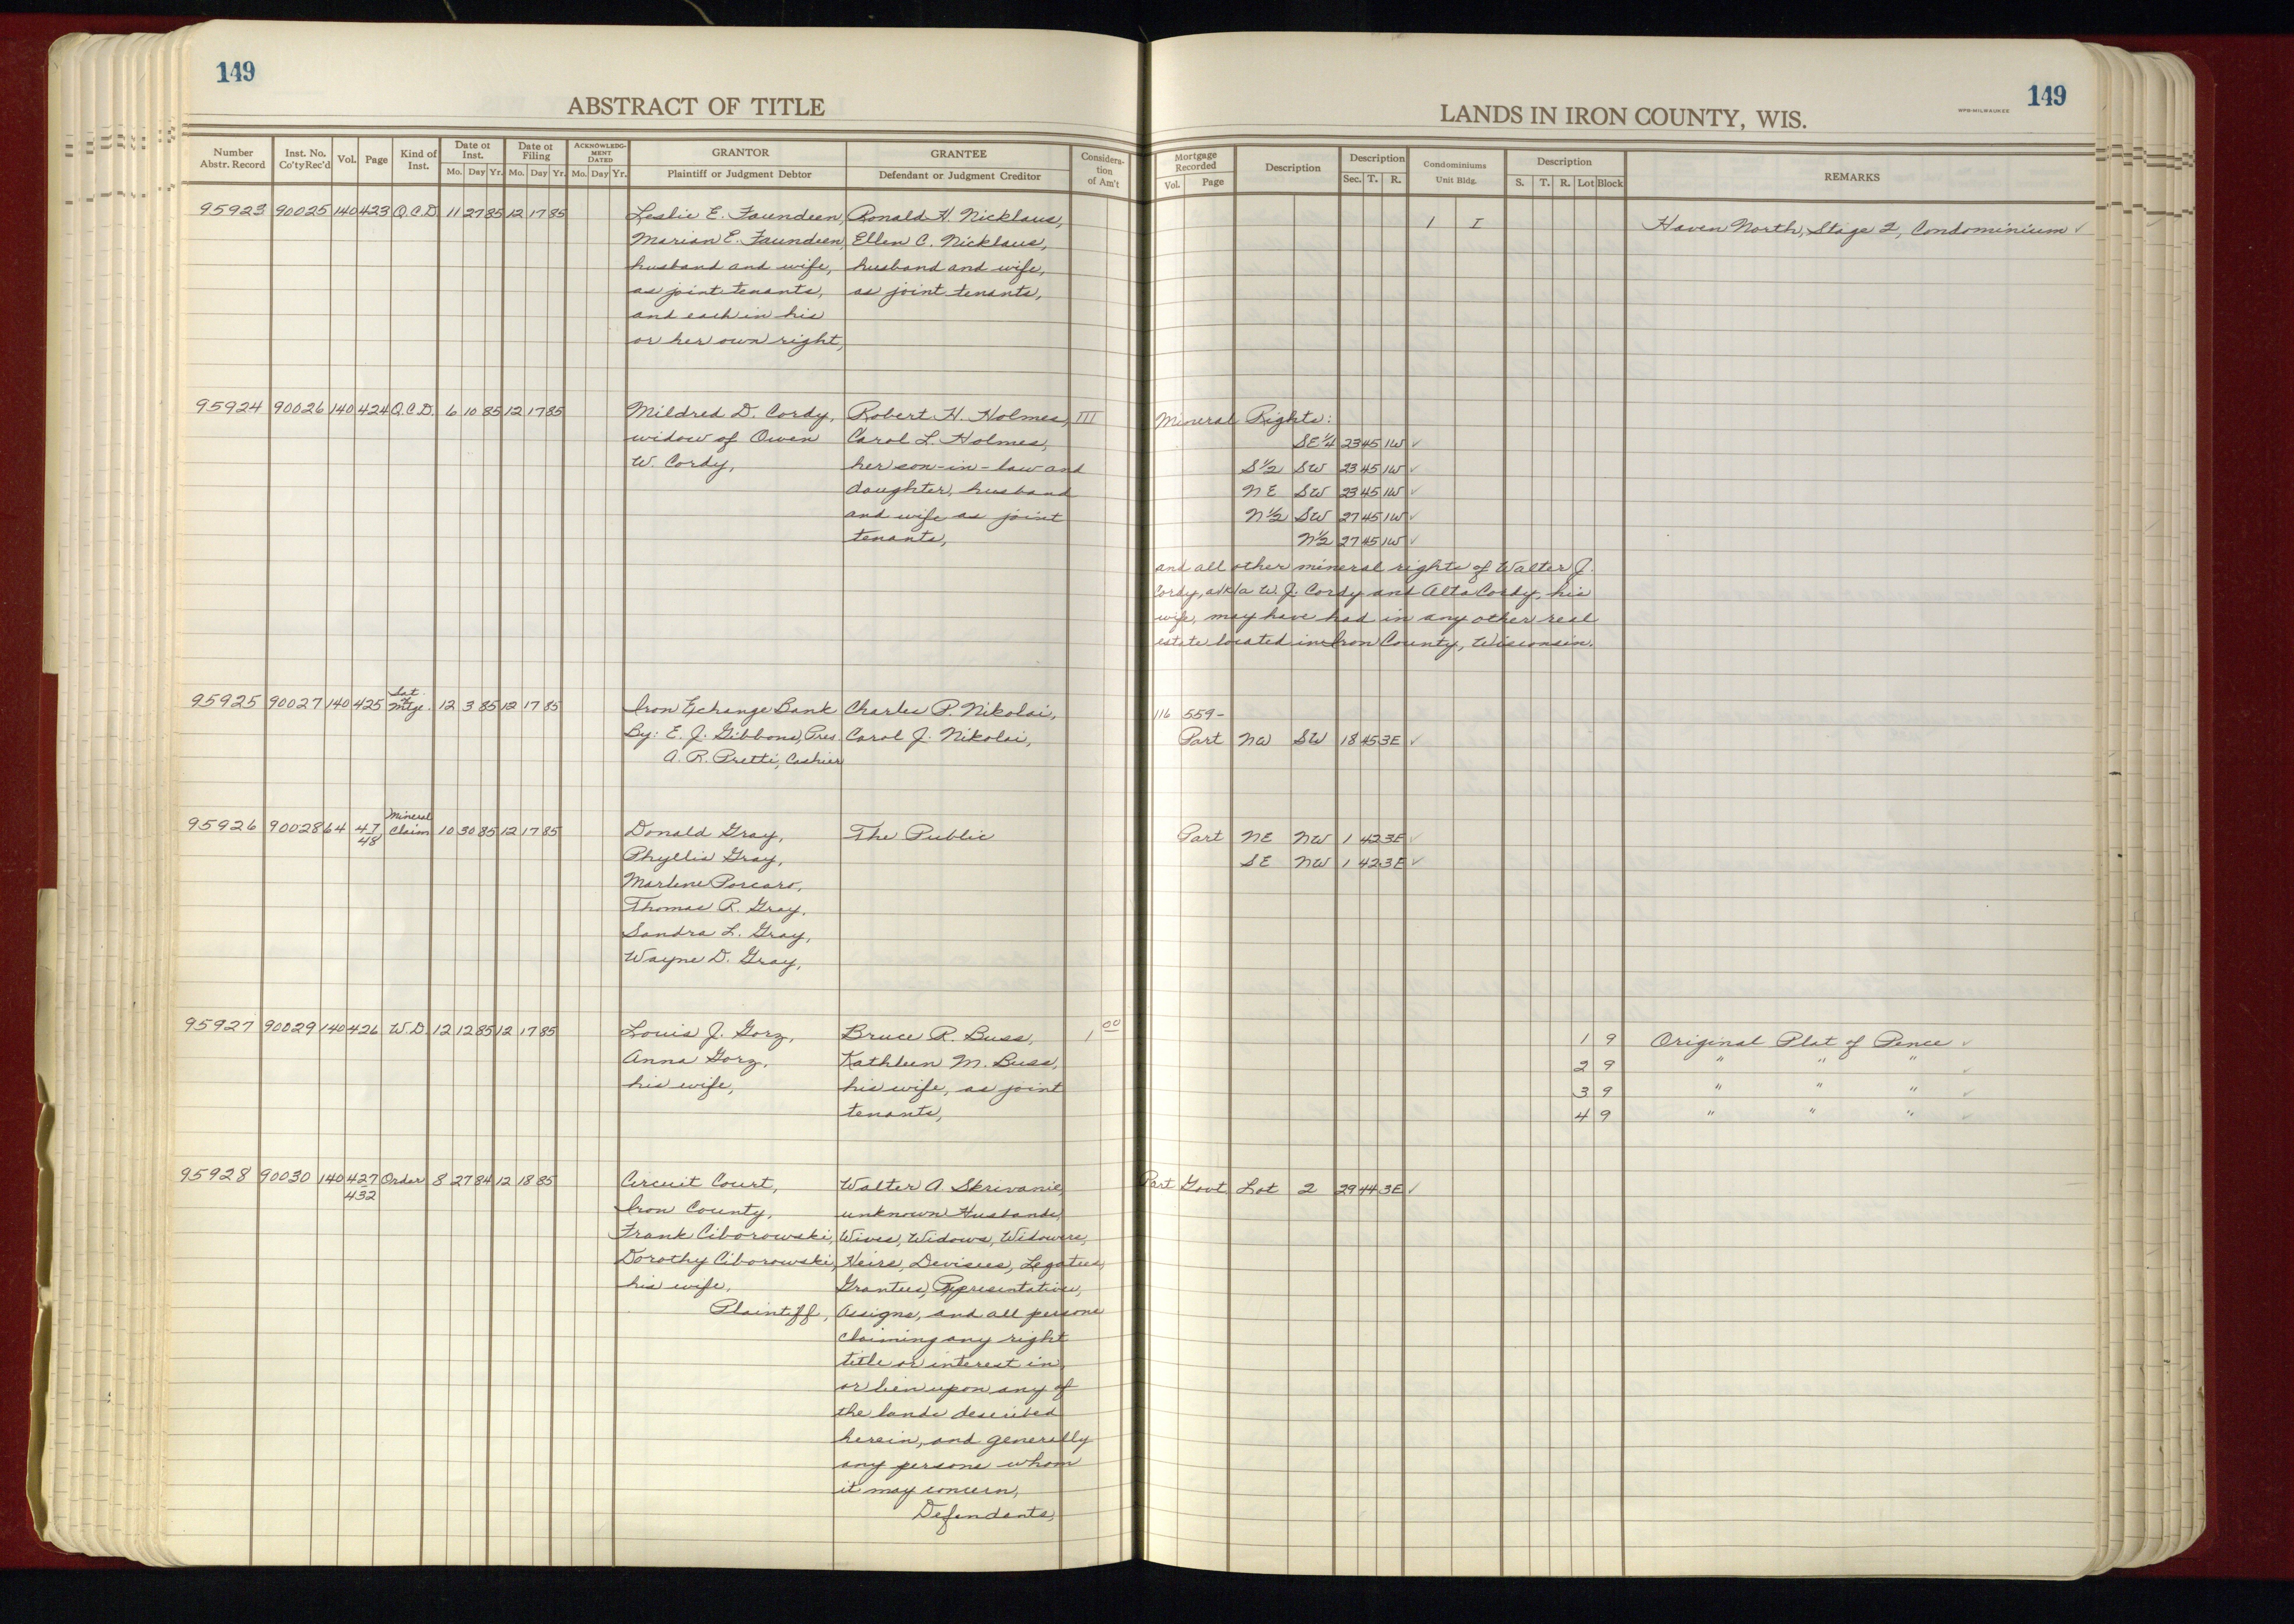 149
149
ABSTRACT OF TITLE
LANDS IN IRON COUNTY, WIS.
WPB-MILWAUKEE
Number Abstr. Record
Inst. No. Co'ty Rec'd
Vol.
Page
Kind of Inst.
Date of Inst.
Mo. Day Yr.
Date of Filing
Mo. Day Yr.
ACKNOWLEDGMENT DATED
Mo. Day Yr.
GRANTOR
Plaintiff or Judgment Debtor
GRANTEE
Defendant or Judgment Creditor
Consideration of Am't
Mortgage Recorded
Vol. Page
Description
Description
Sec. T. R.
Condominiums
Unit Bldg.
Description
S. T. R. Lot Block
REMARKS
95923 90025 140 423 Q.C.D. 11 27 85 12 17 85 Leslie E. Faundeen, Ronald H. Nicklaus, 1 I Haven North, Stage 2, Condominium ✓
Marian E. Faundeen, Ellen C. Nicklaus,
husband and wife, husband and wife,
as joint tenants, as joint tenants,
and each in his
or her own right,
95924 90026 140 424 Q.C.D. 6 10 85 12 17 85 Mildred D. Cordy, Robert H. Holmes, III Mineral Rights:
widow of Owen Carol L. Holmes, SE 1/4 23 45 1W ✓
W. Cordy, her son-in-law and S 1/2 SW 23 45 1W ✓
daughter, husband NE SW 23 45 1W ✓
and wife as joint N 1/2 SW 27 45 1W ✓
tenants, N 1/2 27 45 1W ✓
and all other mineral rights of Walter J.
Cordy, a/k/a W. J. Cordy and Alta Cordy, his
wife, may have had in any other real
estate located in Iron County, Wisconsin.
95925 90027 140 425 Sat. of Mtge. 12 3 85 12 17 85 Iron Exchange Bank Charles P. Nikolai, 116 559-
By: E. J. Gibbons, Pres. Carol J. Nikolai, Part NW SW 18 45 3E ✓
A. R. Pretti, Cashier
95926 90028 64 47 48 Mineral Claim 10 30 85 12 17 85 Donald Gray, The Public Part NE NW 1 42 3E ✓
Phyllis Gray, SE NW 1 42 3E ✓
Marlene Porcaro,
Thomas R. Gray,
Sandra L. Gray,
Wayne D. Gray,
95927 90029 140 426 W.D. 12 12 85 12 17 85 Louis J. Gorz, Bruce R. Buss, 1 00 1 9 Original Plat of Pence ✓
Anna Gorz, Kathleen M. Buss, 2 9 " " " ✓
his wife, his wife, as joint 3 9 " " " ✓
tenants, 4 9 " " " ✓
95928 90030 140 427 432 Order 8 27 84 12 18 85 Circuit Court, Walter A. Skrivanie, Part Govt Lot 2 29 44 3E ✓
Iron County, unknown Husbands,
Frank Ciborowski, Wives, Widows, Widowers,
Dorothy Ciborowski, Heirs, Devisees, Legatees,
his wife, Grantees, Representatives,
Plaintiff, Assigns, and all persons
claiming any right
title or interest in,
or lien upon any of
the lands described
herein, and generally
any persons whom
it may concern,
Defendants,